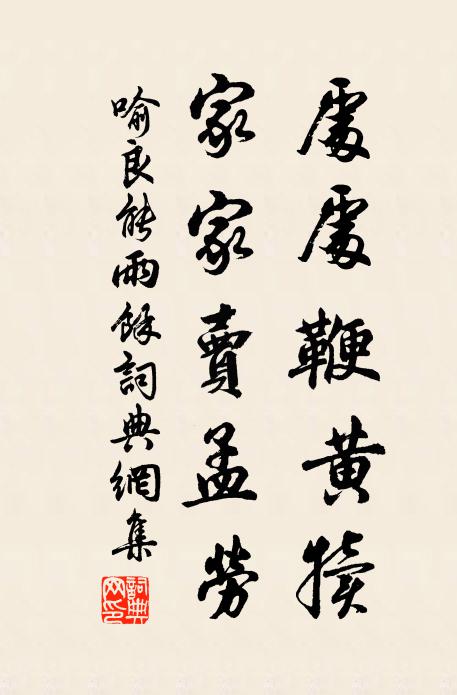 處處鞭黃犢
家家賣孟勞
喻良能雨餘詞典網集
詞典网印